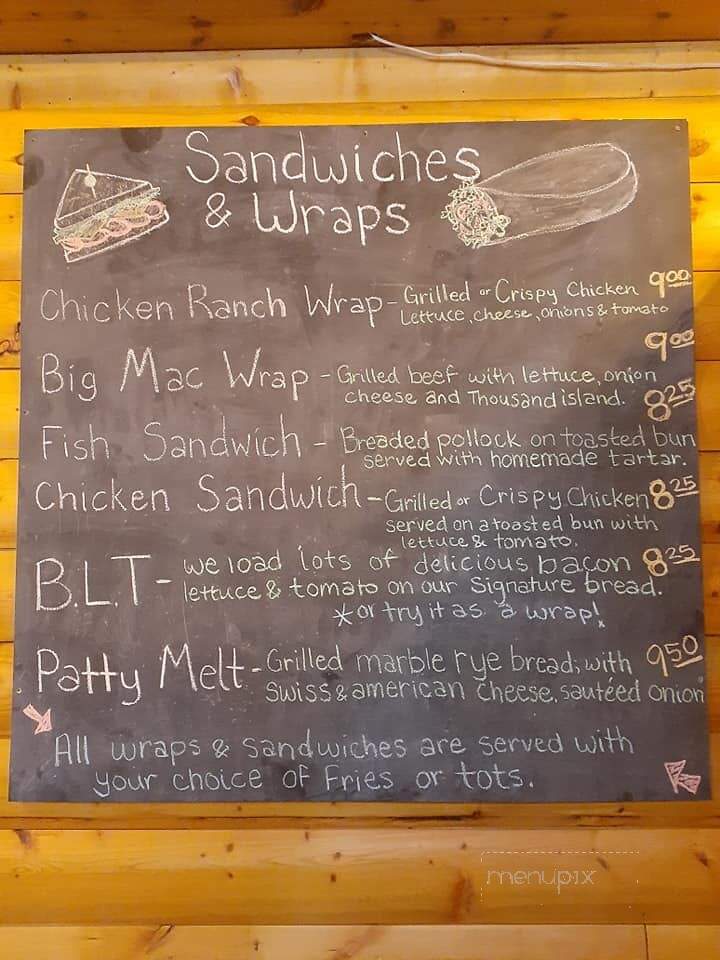 Sandwiches
& Wraps
Chicken Ranch Wrap - Grilled or Crispy Chicken 9.00
Lettuce, cheese, onions & tomato
Big Mac Wrap - Grilled beef with lettuce, onion 9.00
cheese and Thousand island.
Fish Sandwich - Breaded pollock on toasted bun 8.25
served with homemade tartar.
Chicken Sandwich - Grilled or Crispy Chicken 8.25
served on a toasted bun with
lettuce & tomato.
B.L.T - we load lots of delicious bacon 8.25
lettuce & tomato on our Signature bread.
*or try it as a wrap!
Patty Melt - Grilled marble rye bread, with 9.50
Swiss & american cheese, sautéed onion
All wraps & sandwiches are served with
your choice of Fries or tots.
menupix